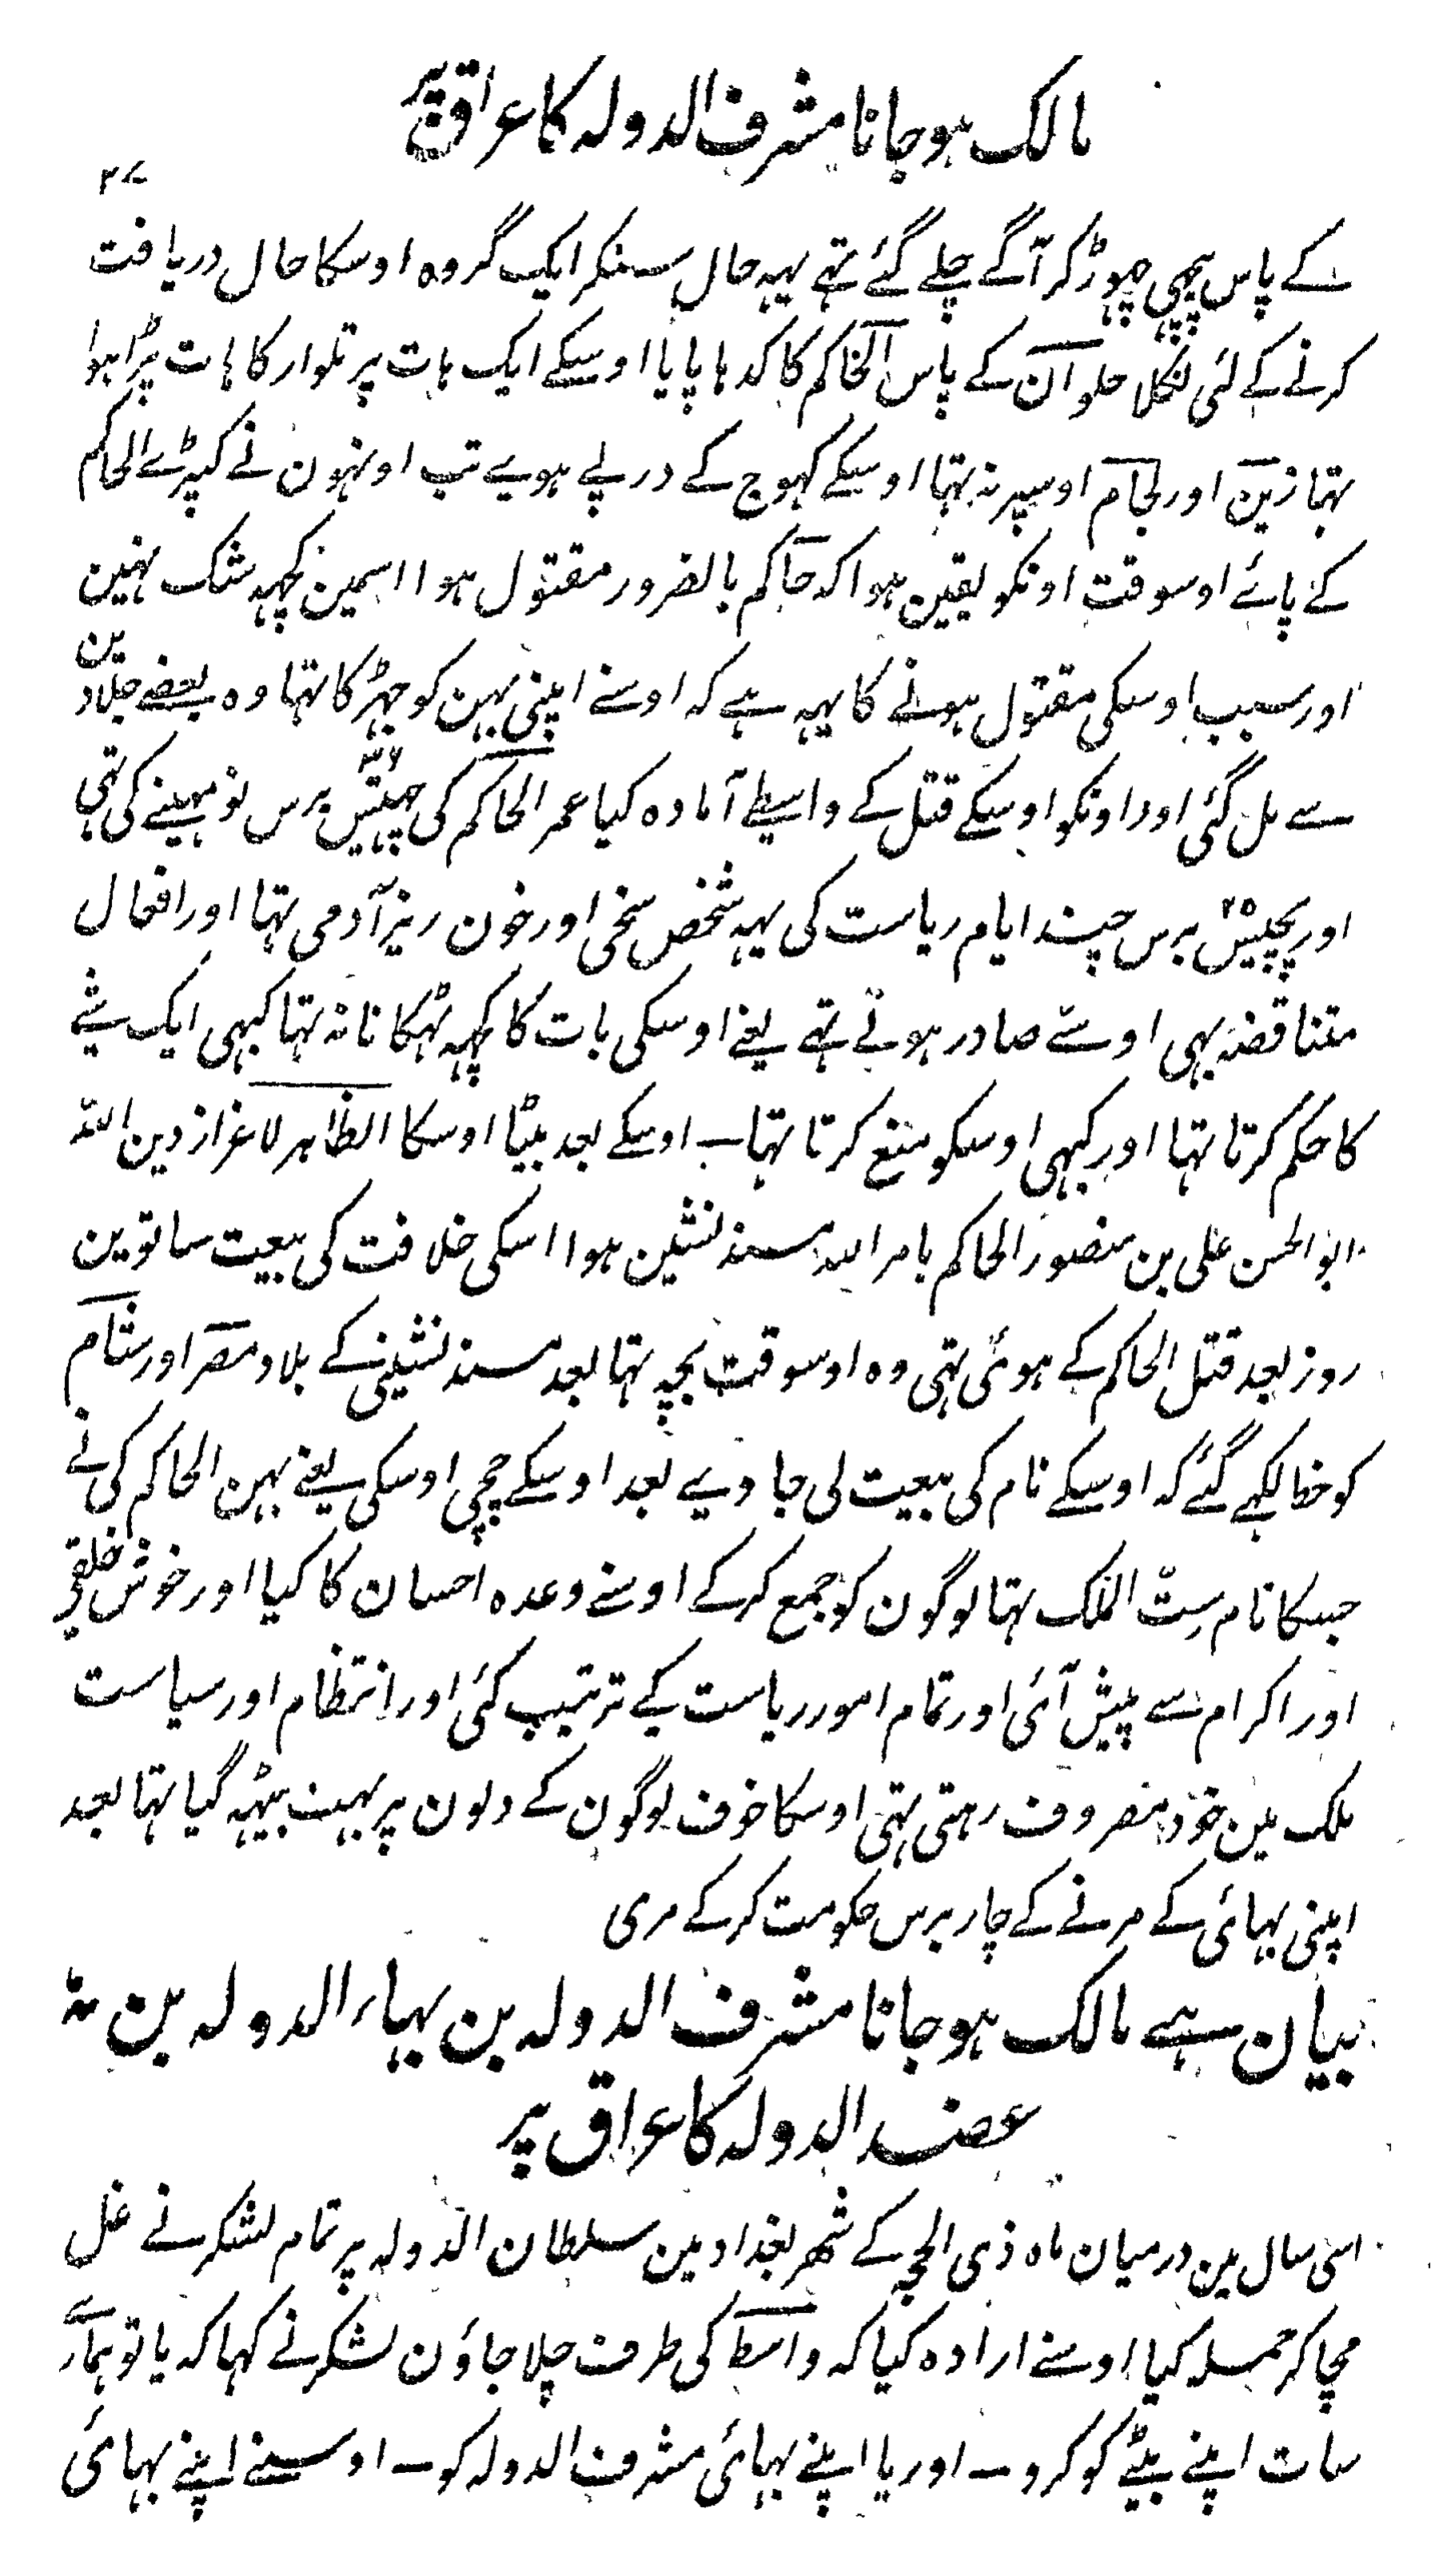 مالک ہوجانا مشرف الدولہ کا عراق پر
۳۷
کے پاس پیچھی چہوڑ کر آگے چلے گئے تہے یہہ حال سنکر ایک گروہ اوسکا حال دریافت
کرنے کے لئی نکلا حلوان کے پاس الحاکم کا کدہا پایا اوسکے ایک ہات پر تلوار کا ہات پڑا ہوا
تہا زین اور لجام اوسپر نہ تہا اوسکے کہوج کے درپے ہویے تب اونہون نے کپڑے الحاکم
کے پائے اوسوقت اونکو یقین ہوا کہ حاکم بالضرور مقتول ہوا اسمین کچہہ شک نہین
اور سبب اوسکی مقتول ہونے کا یہہ ہے کہ اوسنے اپنی بہن کو جہڑکا تہا وہ بعضے جلادین
سے مل گئی اور اونکو اوسکے قتل کے واسطے آمادہ کیا عمر الحاکم کی چہتیس ۳۶ برس نو مہینے کی تہی
اور پچیس ۲۵ برس چند ایام ریاست کی یہہ شخص سخی اور خون ریز آدمی تہا اور افعال
متناقضہ بہی اوسے صادر ہوتے تہے یعنے اوسکی بات کا کچہہ ٹہکانا نہ تہا کبہی ایک شے
کا حکم کرتا تہا اور کبہی اوسکو منع کرتا تہا ـ اوسکے بعد بیٹا اوسکا الظاہر لاعزاز دین اللہ
ابو الحسن علی بن منصور الحاکم بامر اللہ مسند نشین ہوا اسکی خلافت کی بیعت ساتوین
روز بعد قتل الحاکم کے ہوئی تہی وہ اوسوقت بچہ تہا بعد مسند نشینی کے بلاد مصر اور شام
کو خط لکہے گئے کہ اوسکے نام کی بیعت لی جاویے بعد اوسکے چچی اوسکی یعنے بہن الحاکم کی نے
جسکا نام سِتّ الملک تہا لوگون کو جمع کرکے اوسنے وعدہ احسان کا کیا اور خوش خلقی
اور اکرام سے پیش آئی اور تمام امور ریاست کے ترتیب کئی اور انتظام اور سیاست
ملک مین خود مصروف رہتی تہی اوسکا خوف لوگون کے دلون پر بہت بیٹہہ گیا تہا بعد
اپنی بہائی کے مرنے کے چار برس حکومت کرکے مری
بیان ہے مالک ہوجانا مشرف الدولہ بن بہاء الدولہ بن
عضد الدولہ کا عراق پر
اسی سال مین درمیان ماہ ذی الحجہ کے شہر بغداد مین سلطان الدولہ پر تمام لشکر نے غل
مچا کر حملہ کیا اوسنے ارادہ کیا کہ واسط کی طرف چلا جاؤن لشکر نے کہا کہ یا تو ہمارے
سات اپنے بیٹے کو کرو ـ اور یا اپنے بہائی مشرف الدولہ کو ـ اوسنے اپنے بہائی